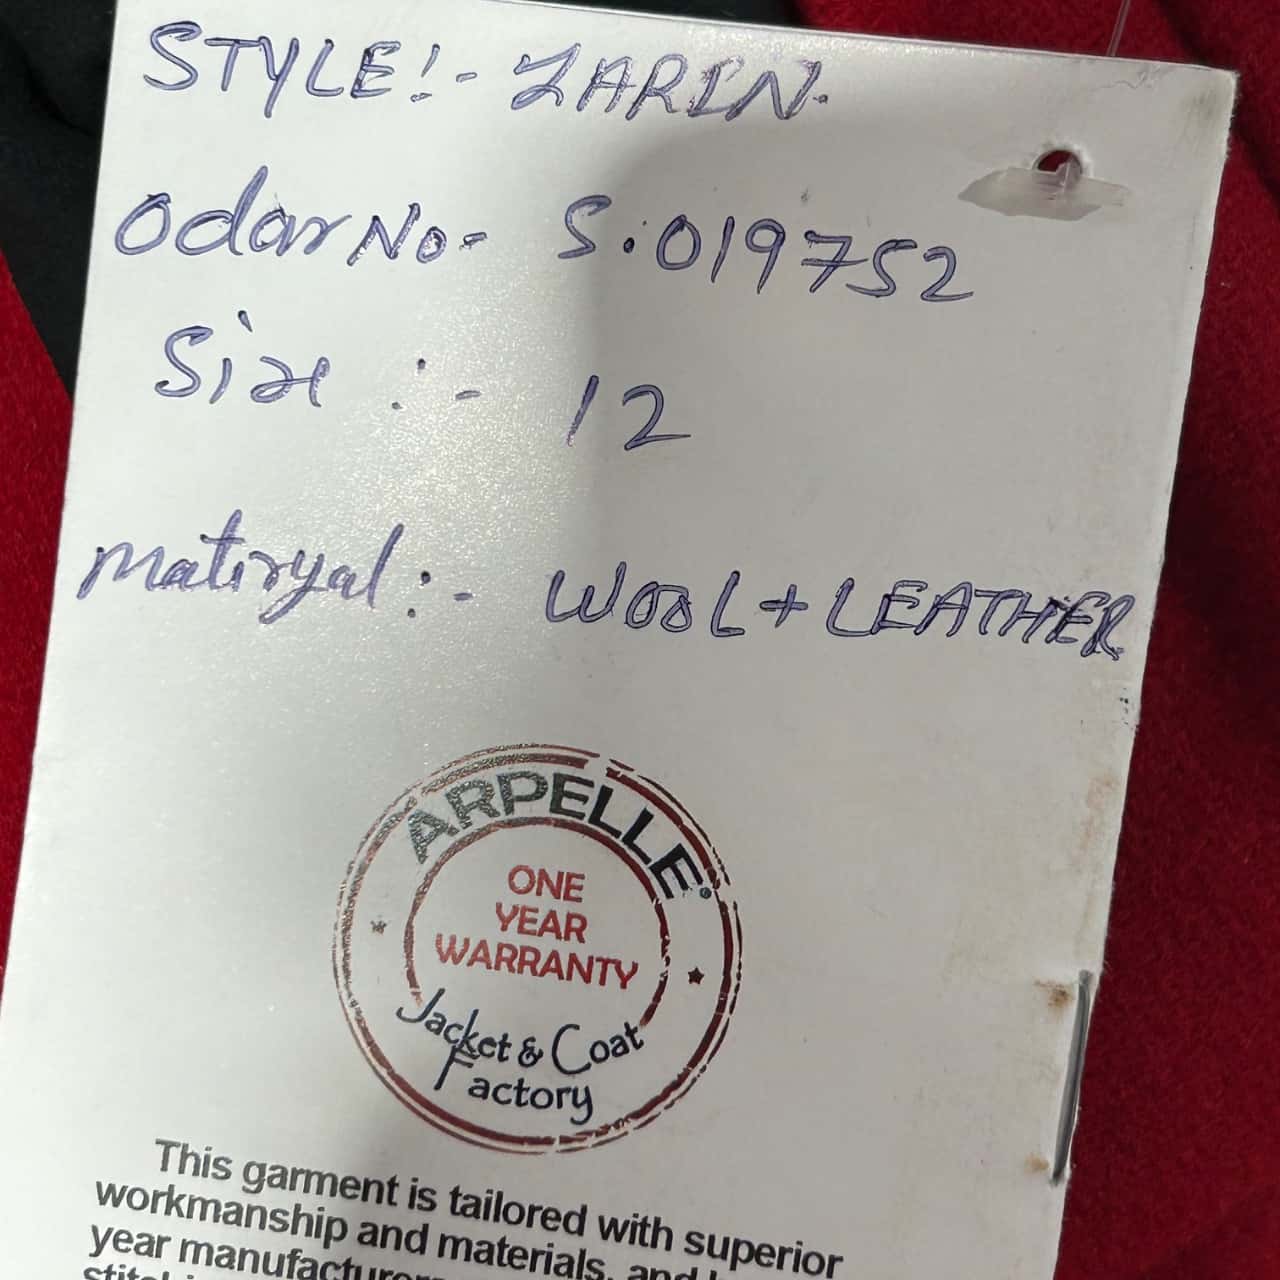 STYLE:- ZARIN.
Odar No- S.019752
Size :- 12
matiryal :- WOOL + LEATHER
ARPELLE®
ONE
YEAR
WARRANTY
Jacket & Coat
Factory
This garment is tailored with superior
workmanship and materials, and
year manufacturer